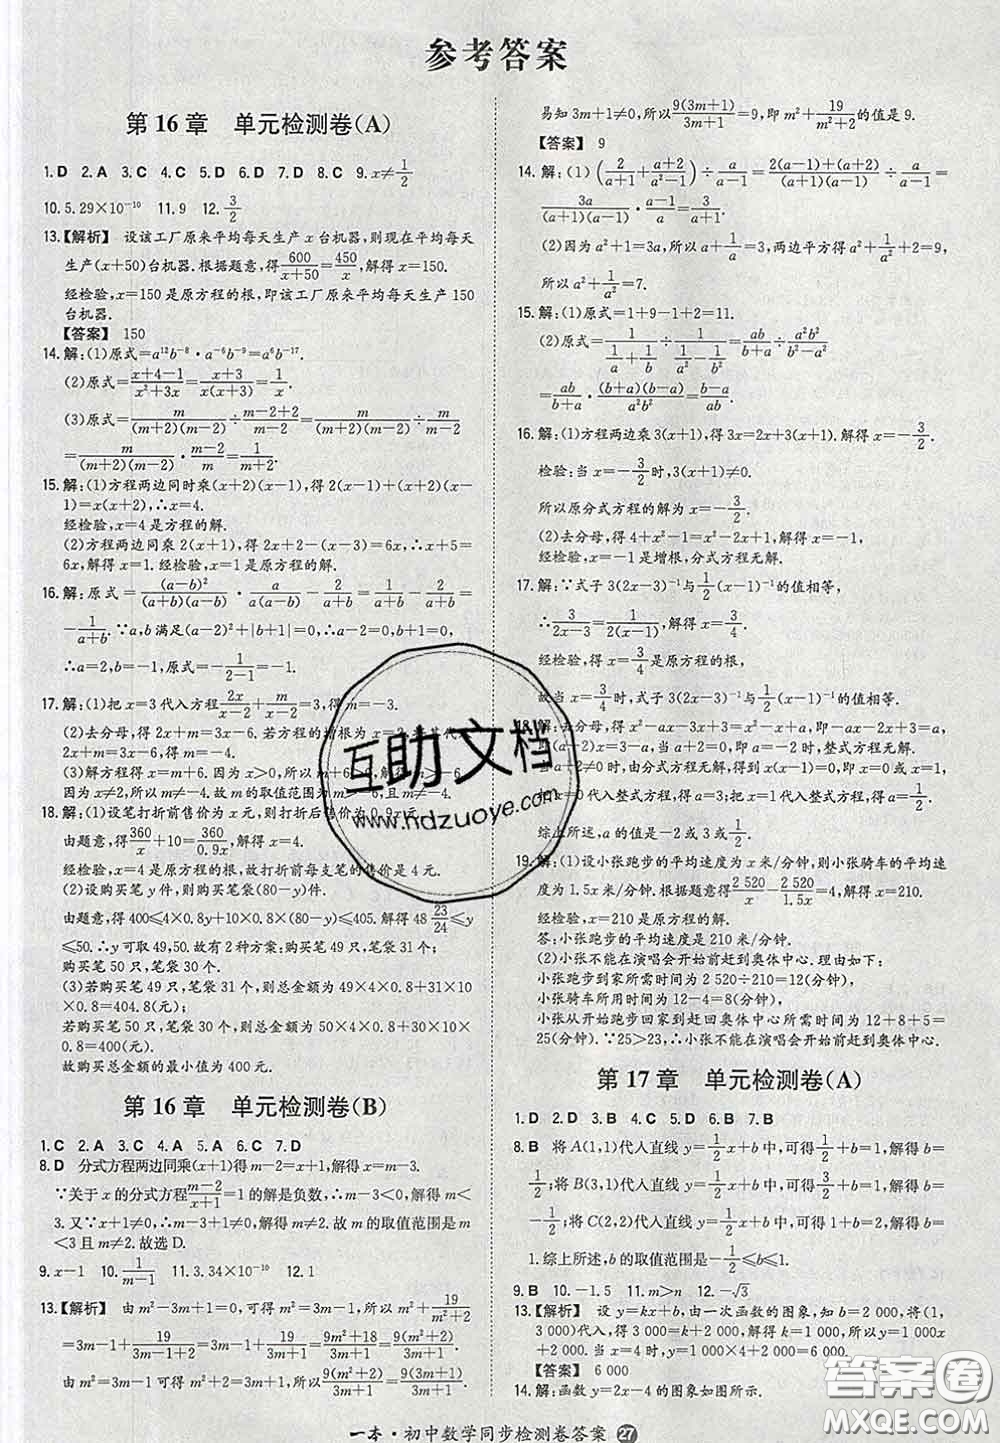 参考答案
第16章 单元检测卷(A)
1.D 2.A 3.C 4.C 5.D 6.D 7.D 8.C 9.x≠1/2
10.5.29×10⁻¹⁰ 11.9 12.3/2
13.【解析】 设该工厂原来平均每天生产x台机器,则现在平均每天
生产(x+50)台机器.根据题意,得600/(x+50)=450/x,解得x=150.
经检验,x=150是原方程的根,即该工厂原来平均每天生产150
台机器.
【答案】 150
14.解:(1)原式=a¹²b⁻⁸·a⁻⁶b⁻⁹=a⁶b⁻¹⁷.
(2)原式=(x+4-1)/(x²+3x)=(x+3)/(x(x+3))=1/x.
(3)原式=m/((m+2)(m-2))÷(m-2+2)/(m-2)=m/((m+2)(m-2))÷m/(m-2)
=m/((m+2)(m-2))·(m-2)/m=1/(m+2).
15.解:(1)方程两边同时乘(x+2)(x-1),得2(x-1)+(x+2)(x-
1)=x(x+2),∴x=4.
经检验,x=4是方程的解.
(2)方程两边同乘2(x+1),得2x+2-(x-3)=6x,∴x+5=
6x,解得x=1.经检验,x=1是方程的解.
16.解:原式=(a-b)²/((a+b)(a-b))·a/(a-b)-2/(a+b)=
-1/(a+b).∵a,b满足(a-2)²+|b+1|=0,
∴a=2,b=-1,原式=-1/(2-1)=-1.
17.解:(1)把x=3代入方程2x/(x-2)+m/(x-2)=,得m=-3.
(2)去分母,得2x+m=
2x+m=
(3)解方程得x=m+6.因为x>0,所以m+6>
因为x≠2,所以m≠-4.故m的取值范围为m>-6,且m≠-4.
18.解:(1)设笔打折前售价为x元,则打折后售价为
由题意,得360/x+10=360/(0.9x),解得x=4.
经检验,x=4是原方程的根.故打折前每支笔的售价是4元.
(2)设购买笔y件,则购买笔袋(80-y)件.
由题意,得400≤4×0.8y+10×0.8(80-y)≤405.解得48 23/24≤y
≤50.∴y可取49,50.故有2种方案:购买笔49只,笔袋31个;
购买笔50只,笔袋30个.
(3)若购买笔49只,笔袋31个,则总金额为49×4×0.8+31×10
×0.8=404.8(元);
若购买笔50只,笔袋30个,则总金额为50×4×0.8+30×10×
0.8=400(元).
故购买总金额的最小值为400元.
第16章 单元检测卷(B)
1.C 2.A 3.C 4.A 5.A 6.C 7.D
8.D 分式方程两边同乘(x+1)得m-2=x+1,解得x=m-3.
∵关于x的分式方程(m-2)/(x+1)=1的解是负数,∴m-3<0,解得m<
3.又∵x+1≠0,∴m-3+1≠0,解得m≠2.故m的取值范围是m
<3且m≠2.故选D.
9.x-1 10.1/(m-1) 11.3.34×10⁻¹⁰ 12.1
13.【解析】 由m²-3m+1=0,可得m²=3m-1,所以m²+19/(m²+2)
=3m-1+19/(3m-1+2)=3m-1+19/(3m+1)=(9m²+18)/(3m+1)=9(m²+2)/(3m+1).
由m²-3m+1=0可得m²+2=3m+1,所以9(m²+2)/(3m+1)=9(3m+1)/(3m+1).
易知3m+1≠0,所以9(3m+1)/(3m+1)=9,即m²+19/(m²+2)的值是9.
【答案】 9
14.解:(1)(2/(a+1)+(a+2)/(a²-1))÷a/(a-1)=(2(a-1)+(a+2))/((a+1)(a-1))÷a/(a-1)=
3a/((a+1)(a-1))·(a-1)/a=3/(a+1).
(2)因为a²+1=3a,所以a+1/a=3,两边平方得a²+1/a²+2=9,
所以a²+1/a²=7.
15.解:(1)原式=1+9-1+2=11.
=ab/(b+a)÷a²b²/
=ab/(b+a)·(b+a)(b-a)/(a²b²)=(b-a)/ab.
16.解:(1)方程两边乘3(x+1),得3x=2x+3(x+1).解得x=-3/2.
检验:当x=-3/2时,3(x+1)≠0.
所以原分式方程的解为x=-3/2.
(2)去分母,得4+x²-1=x²-2x+1,解得x=-1.
经检验x=-1是增根,分式方程无解.
17.解:∵式子3(2x-3)⁻¹与1/2(x-1)⁻¹的值相等,
∴3/(2x-3)=1/(2(x-1)),解得x=3/4.
经检验,得x=3/4是原方程的根,
故当x=3/4时,式子3(2x-3)⁻¹与1/2(x-1)⁻¹的值相等.
18.解:去分母,得x²-ax-3x+3=x²-x,即
a+2)x=3.当a+2=0,即a=-2时,整式方程无解.
当a+2≠0时,由分式方程无解,得到x(x-1)=0,即x=0或x=
代入整式方程,得a=3;把x=1代入整式方程,得a=
综上所述,a的值为-2或
19.解:(1)设小张跑步的平均速度为x米/分钟,则小张骑车的平均速
度为1.5x米/分钟.根据题意得2 520/x-2 520/1.5x=4,解得x=210.
经检验,x=210是原方程的解.
答:小张跑步的平均速度是210米/分钟.
(2)小张不能在演唱会开始前赶到奥体中心.理由如下:
小张跑步到家所需时间为2 520÷210=12(分钟),
小张骑车所用时间为12-4=8(分钟),
小张从开始跑步回家到赶回奥体中心所需时间为12+8+5=
25(分钟).∵25>23,∴小张不能在演唱会开始前赶到奥体中心.
第17章 单元检测卷(A)
1.D 2.D 3.B 4.D 5.D 6.B 7.B
8.B 将A(1,1)代人直线y=1/2x+b中,可得1/2+b=1,解得b=
1/2;将B(3,1)代人直线y=1/2x+b中,可得3/2+b=1,解得b=
-1/2;将C(2,2)代人直线y=1/2x+b中,可得1+b=2,解得b=
1.综上所述,b的取值范围是-1/2≤b≤1.
9.B 10.-1.5 11.m>-2 12.-√3
13.【解析】 设y=kx+b,由一次函数的图象,知b=2 000,将(1,
3 000)代入,得3 000=k+2 000,解得k=1 000,∴y=1 000x
+2 000.当x=4时,y=1 000×4+2 000=6 000.
【答案】 6 000
14.解:函数y=2x-4的图象如图所示.
一本·初中数学同步检测卷答案 27
互助文档
www.hdzuoye.com
答案圈
MXQE.COM